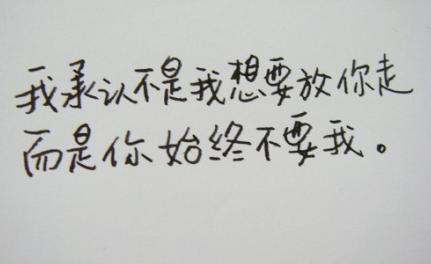 我承认不是我想要放你走
而是你始终不要我。